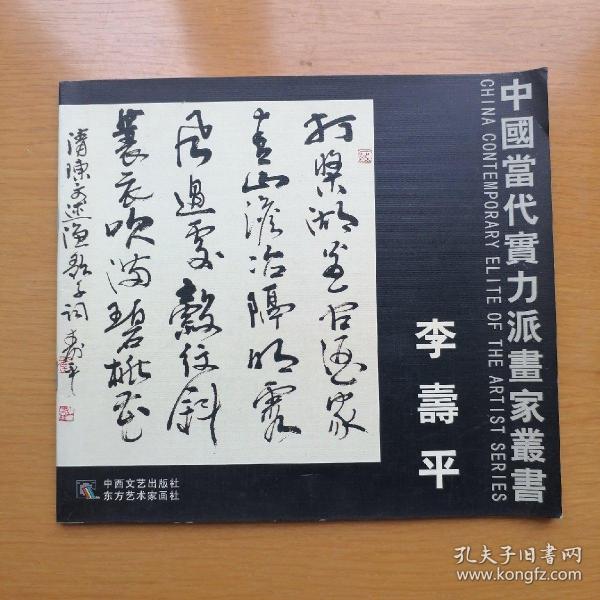 中國當代實力派畫家叢書
CHINA CONTEMPORARY ELITE OF THE ARTIST SERIES
李壽平
打槳湖 酒家
青山澹冶隔明霞
風過處縠紋斜
蓑衣吹满碧桃花
清陳文述漁歌子詞 壽平
中西文艺出版社
东方艺术家画社
孔夫子旧书网
www.kongfz.com